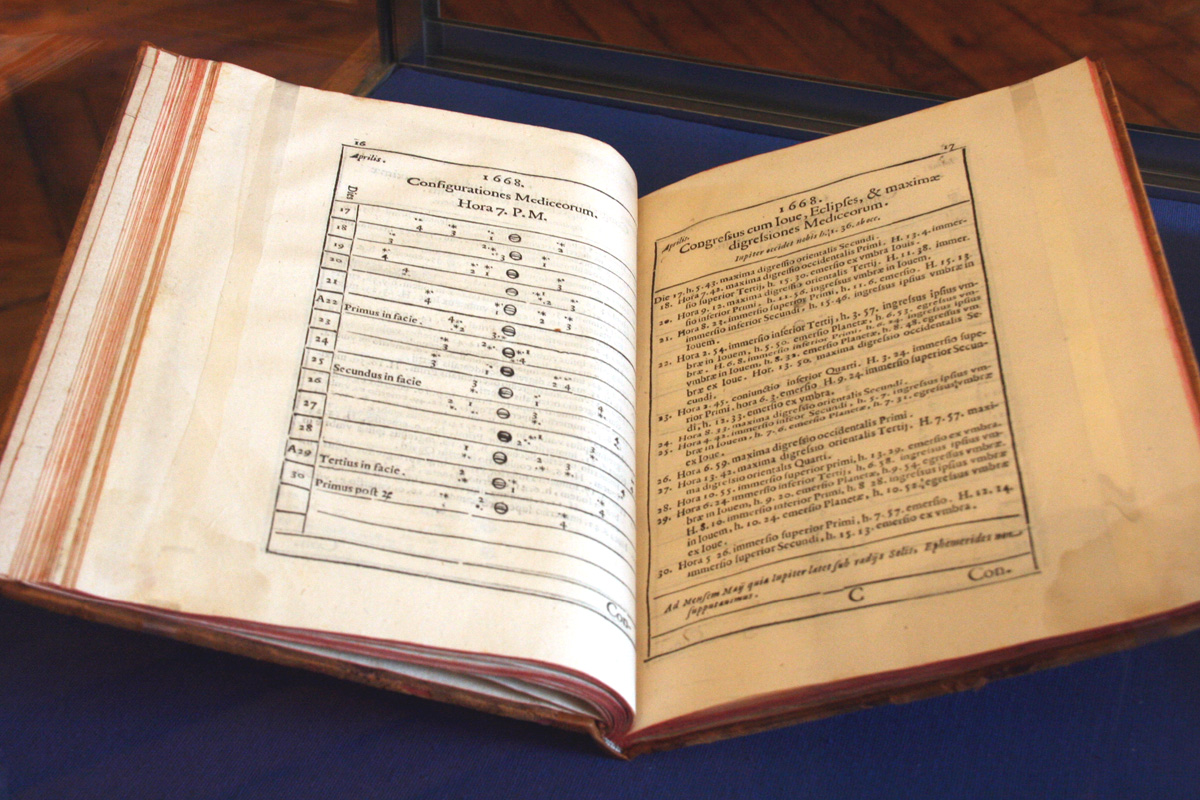 16
Aprilis.
1668.
Configurationes Mediceorum.
Hora 7. P. M.
Dies
17
18
19
20
21
A22
Primus in facie.
23
24
25
Secundus in facie
26
27
28
A29
Tertius in facie.
30
Primus post ♃
Con-
17
Aprilis.
1668.
Congreſſus cum Ioue, Eclipſes, & maximæ
digreſsiones Mediceorum.
Iupiter occidet nobis h. 1. 36. ab occ.
Die 17. h. 5. 43. maxima digreſſio orientalis Secundi.
18. Hora 7. 42. maxima digreſſio occidentalis Primi. H. 13. 4. immer-
ſio ſuperior Tertij, h. 15. 30. emerſio ex vmbra Iouis.
20. Hora 9. 12. maxima digreſſio orientalis Tertij. H. 11. 38. immer.
ſio inferior Primi, h. 12. 36. ingreſſus vmbræ in Iouem.
21. Hora 8. 25. immerſio ſuperior Primi, h. 11. 6. emerſio. H. 15. 13.
immerſio inferior Secundi, h. 15. 46. ingreſſus ipſius vmbræ in
Iouem.
22. Hora 2. 54. immerſio inferior Tertij, h. 3. 57. ingreſſus ipſius vm-
bræ in Iouem, h. 5. 50. emerſio Planetæ, h. 6. 53. egreſſus vm-
bræ. H. 6. 8. immerſio inferior Primi, h. 6. ingreſſus ipſius
vmbræ in Iouem, h. 8. 22. emerſio Planetæ, h. 8. 48. egreſſus vm-
bræ ex Ioue. Hor. 13. 50. maxima digreſſio occidentalis Se-
cundi.
23. Hora 2. 45. coniunctio inferior Quarti. H. 3. 24. immerſio ſupe-
rior Primi, hora 6. 3. emerſio. H. 9. 24. immerſio ſuperior Secun-
di, h. 12. 33. emerſio ex vmbra.
24. Hora 8. 23. maxima digreſſio orientalis Secundi.
25. Hora 4. 42. immerſio inferior Secundi, h. 5. 7. ingreſſus ipſius vm-
bræ in Iouem, h. 7. 6. emerſio Planetæ, h. 7. 31. egreſſus vmbræ
ex Ioue.
26. Hora 6. 59. maxima digreſſio occidentalis Primi.
27. Hora 13. 42. maxima digreſsio orientalis Tertij. H. 7. 57. maxi-
ma digreſsio orientalis Quarti.
28. Hora 10. 55. immerſio ſuperior primi, h. 13. 29. emerſio ex vmbra.
29. Hora 6. 24. immerſio inferior Tertij, h. 6. 58. ingreſſus ipſius vm-
bræ in Iouem, h. 9. 20. emerſio Planetæ, h. 9. 54. egreſſus vmbræ.
H. 8. 10. immerſio inferior Primi, h. 8. 28. ingreſſus ipſius vmbræ
in Iouem, h. 10. 24. emerſio Planetæ, h. 10. 52. egreſſus vmbræ
ex Ioue.
30. Hora 5. 26. immerſio ſuperior Primi, h. 7. 57. emerſio. H. 12. 24.
immerſio ſuperior Secundi, h. 15. 13. emerſio ex vmbra.
Ad Menſem Maij quia Iupiter latet ſub radijs Solis, Ephemerides non
ſupputauimus.
C
Con-